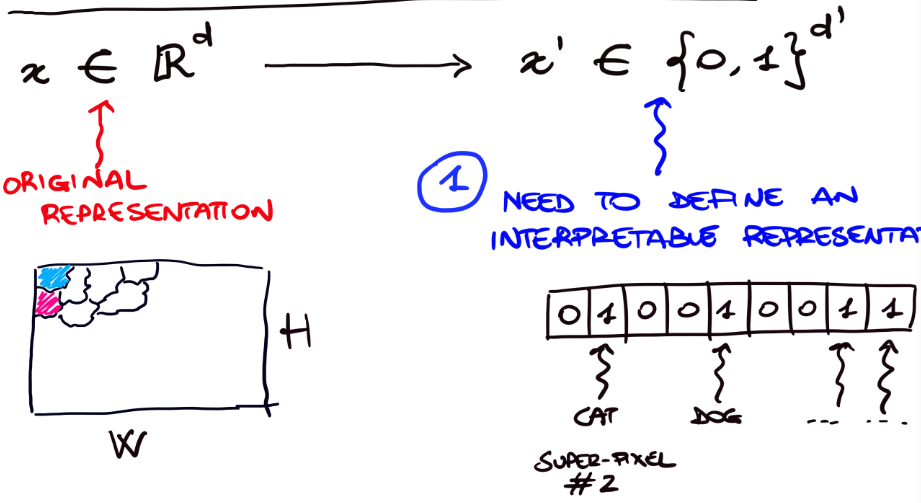 x ∈ ℝ^d → x' ∈ {0, 1}^d'
ORIGINAL
REPRESENTATION
1
NEED TO DEFINE AN
INTERPRETABLE REPRESENTAT
H
W
0 1 0 0 1 0 0 1 1
CAT DOG --- ---
SUPER-PIXEL
#2